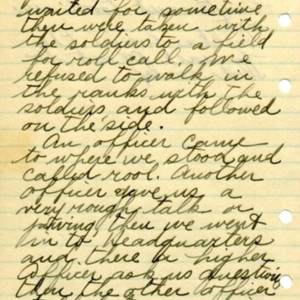 waited for sometime
then were taken with
the soldiers to a field
for roll call. We
refused to walk in
the ranks with the
soldiers and followed
on the side.
An officer came
to where we stood and
called rool. Another
officer gave us a
very rough talk or
then we went
in to headquarters
and there a higher
officer ask us question
then the other officer